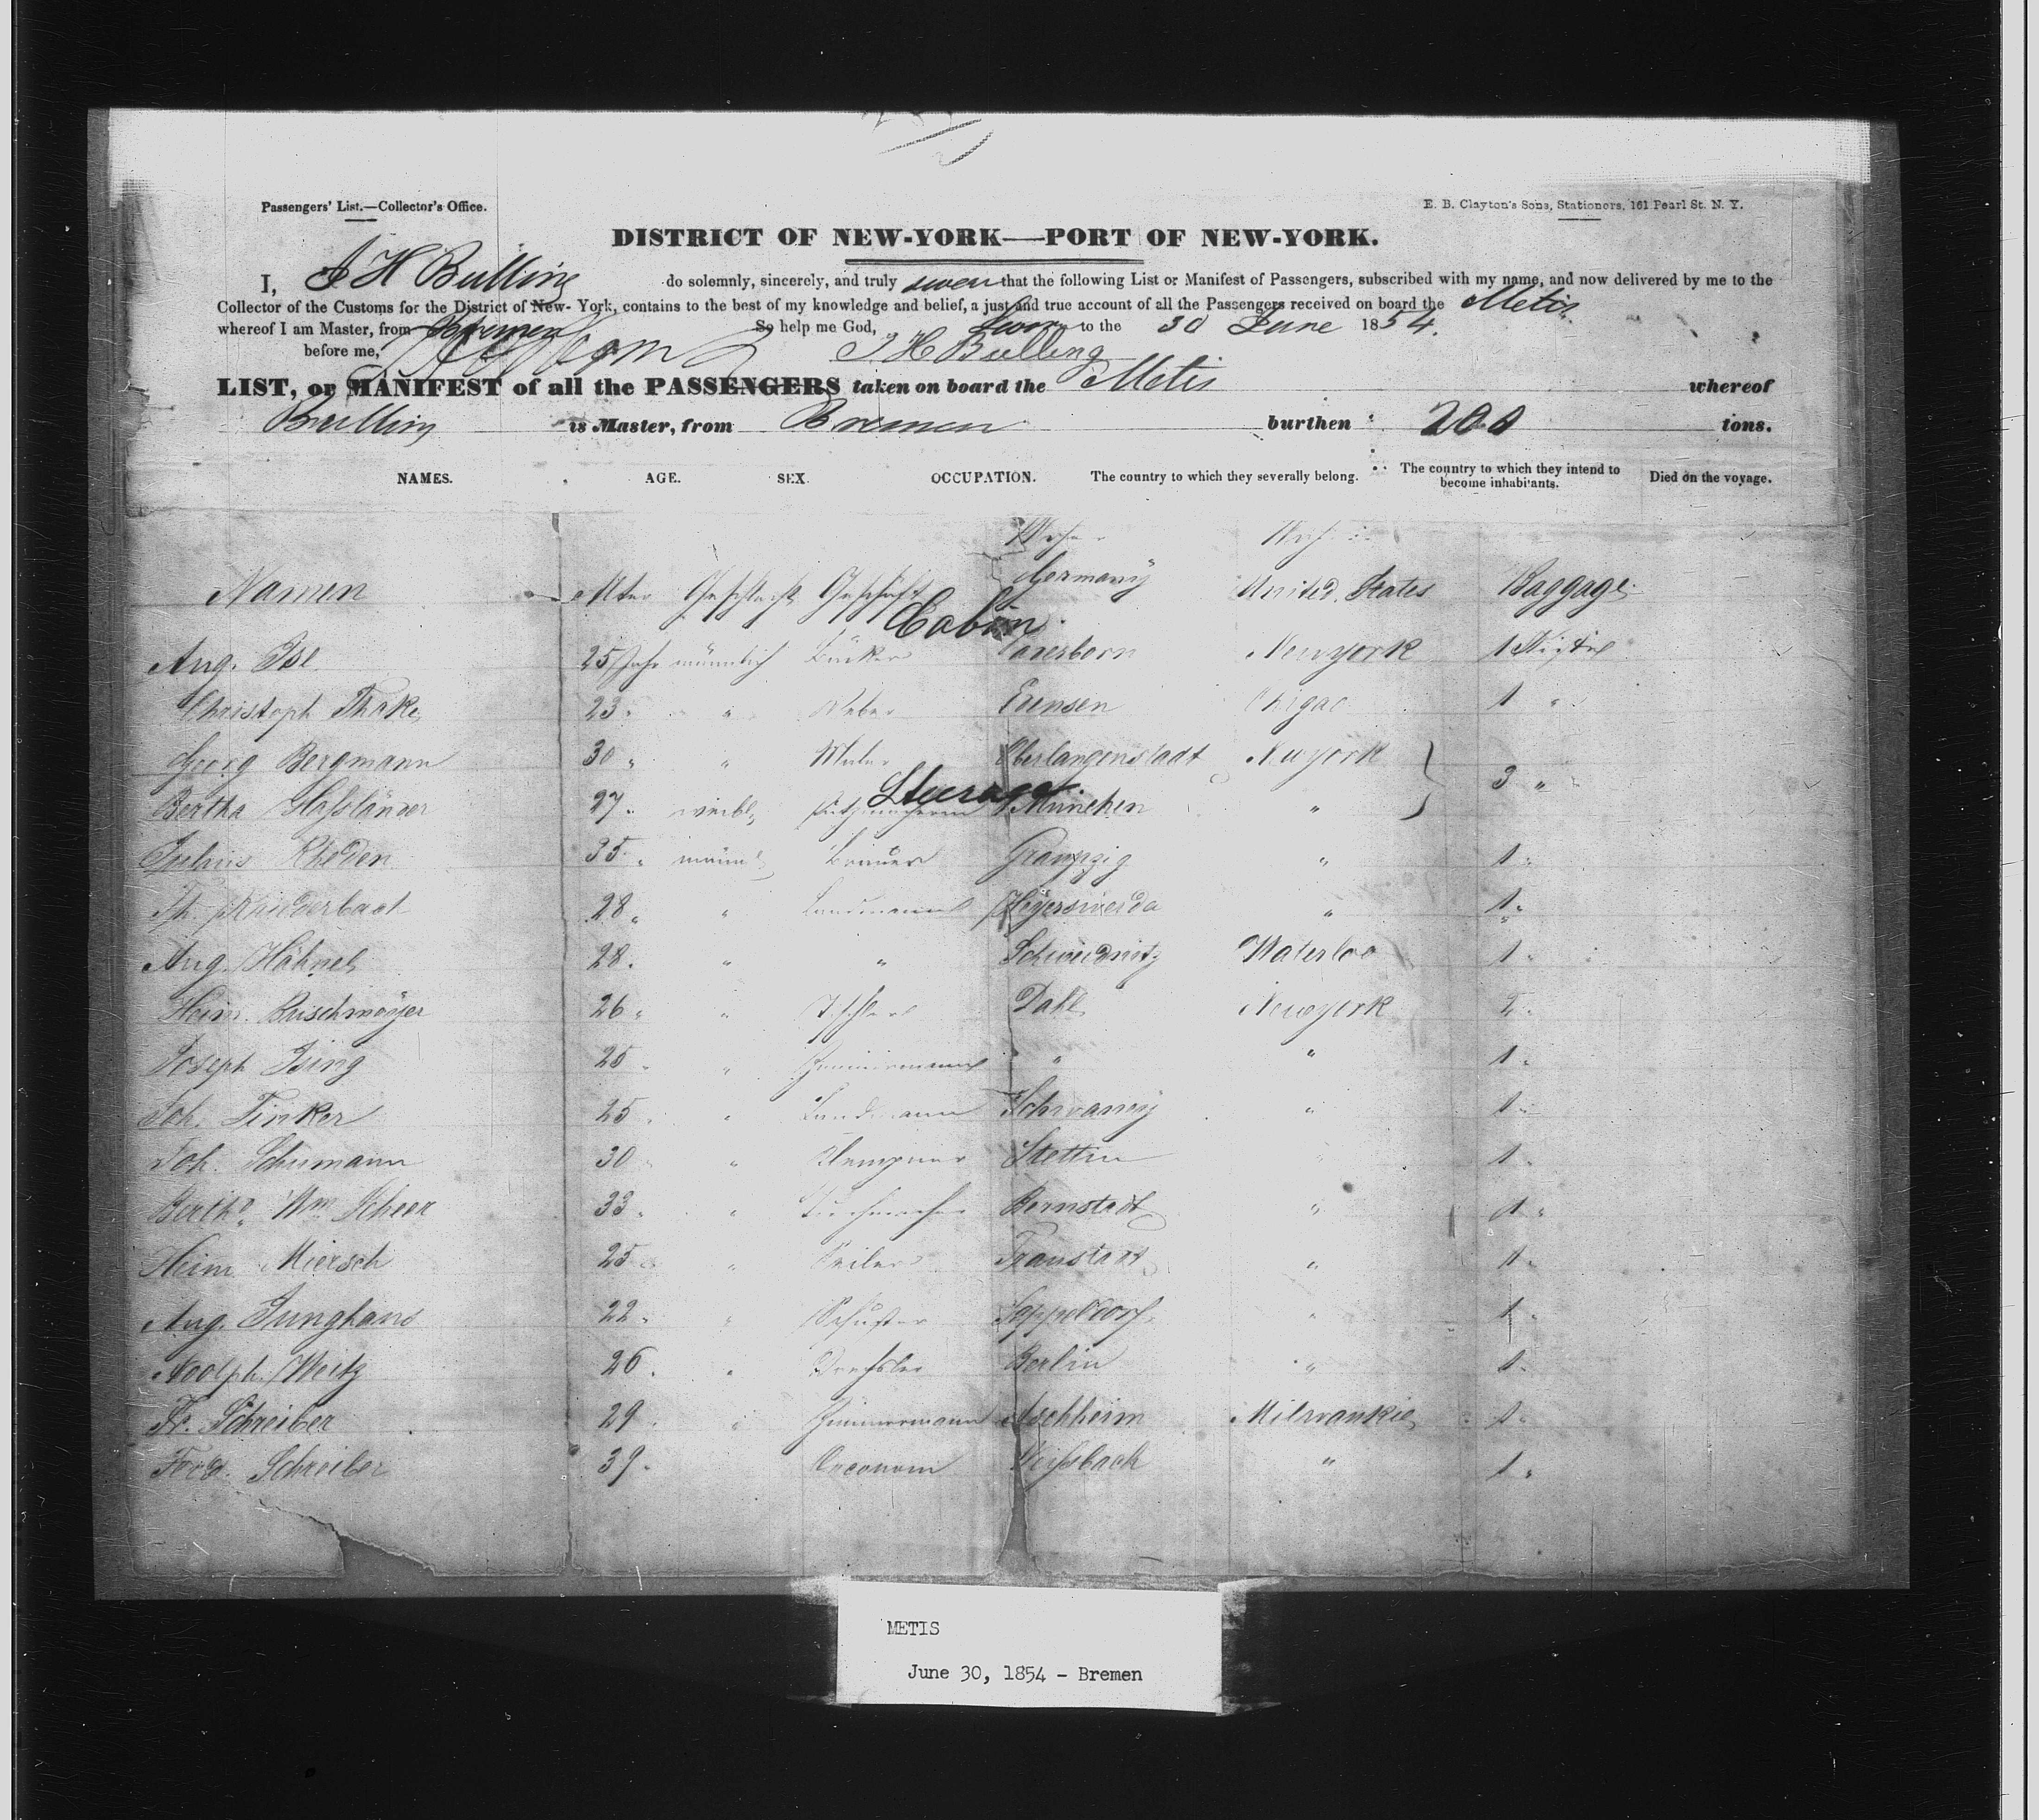 Passengers' List.—Collector's Office.
E. B. Clayton's Sons, Stationers, 161 Pearl St. N. Y.
DISTRICT OF NEW-YORK—PORT OF NEW-YORK.
I, J H Bulling do solemnly, sincerely, and truly swear that the following List or Manifest of Passengers, subscribed with my name, and now delivered by me to the
Collector of the Customs for the District of New-York, contains to the best of my knowledge and belief, a just and true account of all the Passengers received on board the Metis
whereof I am Master, from Bremen So help me God, Sworn to the 30 June 1854.
before me, J H Bulling
LIST, or MANIFEST of all the PASSENGERS taken on board the Metis whereof
Bulling is Master, from Bremen burthen 200 tons.
NAMES. AGE. SEX. OCCUPATION. The country to which they severally belong. The country to which they intend to become inhabitants. Died on the voyage.
Namen Alter Geschlecht Geschäft Germany United States Baggage
Cabin
Aug. Ise 25 Jahr männlich New york 1
Christoph Thake 23 " " Weber Eunsen Chigao 1 "
Georg Bergmann 30 " " Oberlangenstadt Newyork
Steerage
Bertha Hassländer 27 " weibl. Putzmacherin München " 3 "
Julius Rhoden 35 " männl. Brauer " 1 "
28 " " Landmann Hoyerswerda " 1 "
Aug. Hähnel 28 " " " Schweidnitz Waterloo 1 "
Heinr. Buschmeyer 26 " " Tischler Dahl Newyork
Joseph Ising 25 " " Zimmermann " " 1 "
Joh. Tinker 25 " " Landmann Schwaney " 1 "
Joh. Schumann 30 " " Klempner Stettin " 1 "
Berth. Wm. Scheer 33 " " Bernstadt " 1 "
Heinr. Miersch 25 " " Seiler " 1 "
Aug. Junghans 22 " " Schuster " 1 "
Adolph Weitz 26 " " Drechsler Berlin " 1 "
Fr. Schreiber 29 " " Zimmermann Aschheim Milwaukie 1 "
Ferd. Schreiber 39 " Oeconom " 1 "
METIS
June 30, 1854 - Bremen